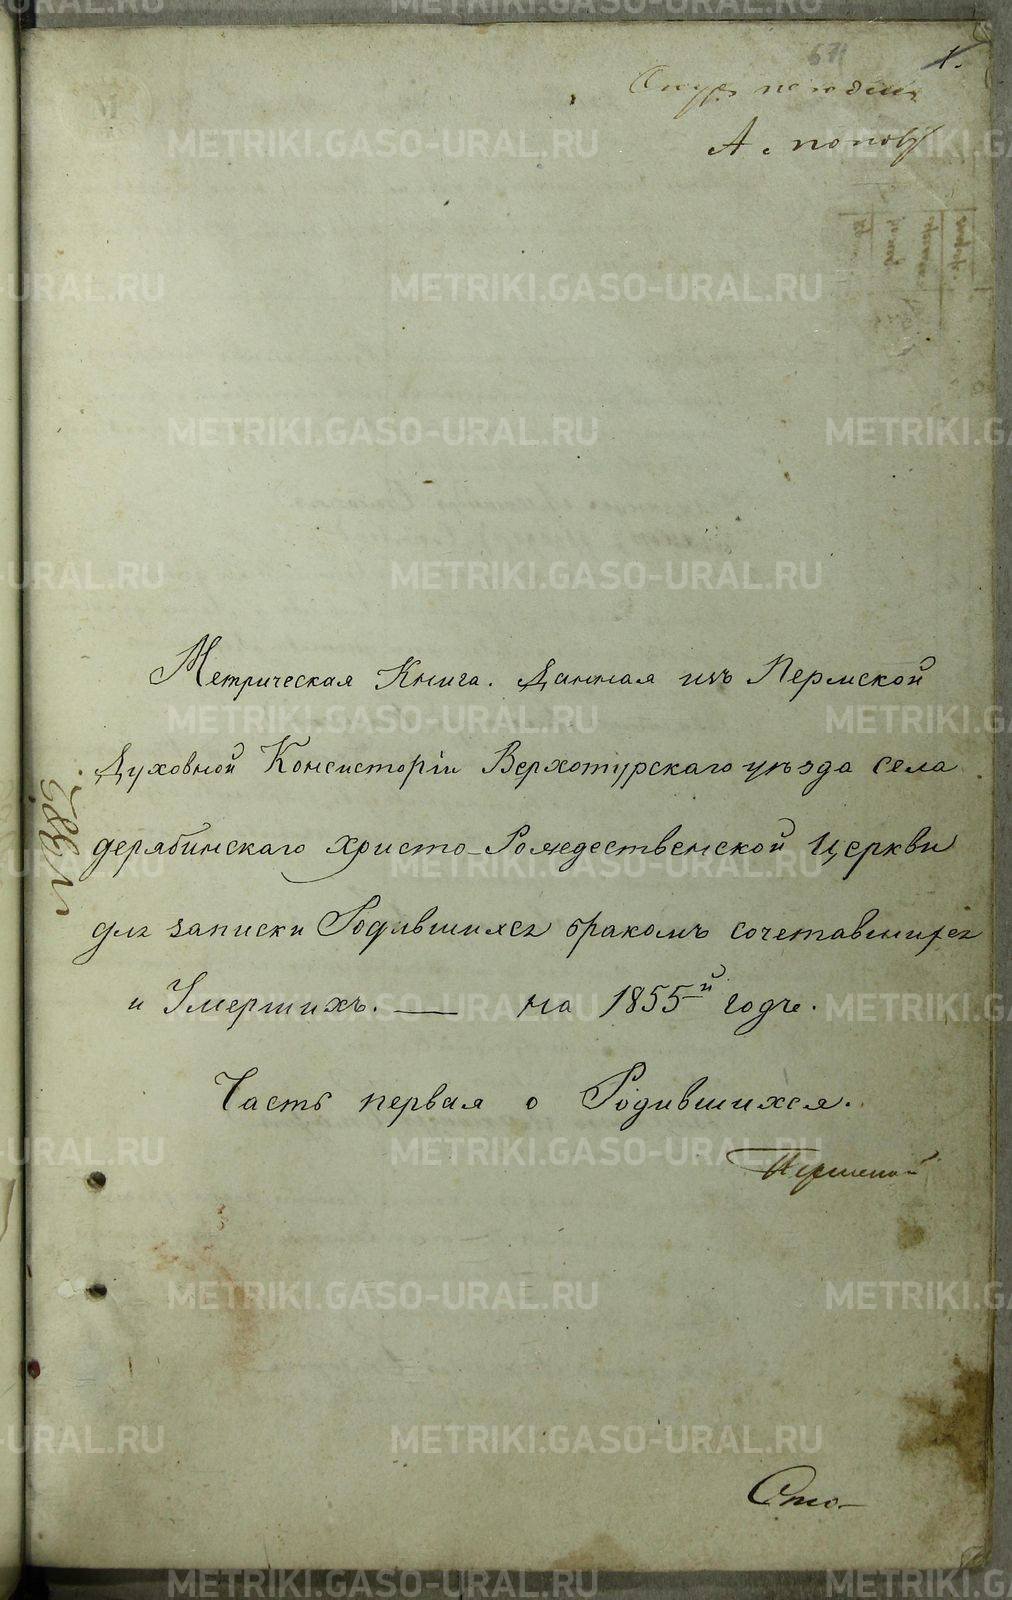 1.
671
А. Поповъ
Метрическая Книга. Данная изъ Пермской
Духовной Консисторіи Верхотурскаго уѣзда села
дерябинскаго Христо-Рождественской Церкви
для записки Родившихся бракомъ сочетавшихся
и Умершихъ. — на 1855й годъ.
Часть первая о Родившихся.
Пермской
Сто-
METRIKI.GASO-URAL.RU